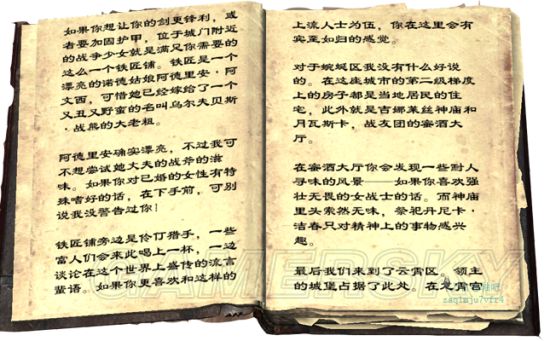 如果你想让你的剑更锋利，或
者要加固护甲，位于城门附近
的战争少女就是满足你需要的
这么一个铁匠铺。铁匠是一个
漂亮的诺德姑娘阿德里安·阿
文西，可惜她已经嫁给了一个
又丑又野蛮的名叫乌尔夫贝斯
·战熊的大老粗。
阿德里安确实漂亮，不过我可
不想尝试她丈夫的战斧的滋
味。如果你对已婚的女性有特
殊嗜好的话，在下手前，可别
说我没警告过你！
铁匠铺旁边是伶仃猎手，一些
富人们会来此喝上一杯，一边
谈论在这个世界上盛传的流言
蜚语。如果你更喜欢和这样的
上流人士为伍，你在这里会有
宾至如归的感觉。
对于蜿蜒区我没有什么好说
的。在这座城市的第二级梯度
上的房子都是当地居民的住
宅，此外就是吉娜莱丝神庙和
月瓦斯卡，战友团的蜜酒大
厅。
在蜜酒大厅你会发现一些耐人
寻味的风景——如果你喜欢强
壮无畏的女战士的话。而神庙
里头索然无味，祭祀丹尼卡·
洁春只对精神上的事物感兴
趣。
最后我们来到了云霄区。领主
的城堡占据了此处。在龙霄宫
GAMERSKY